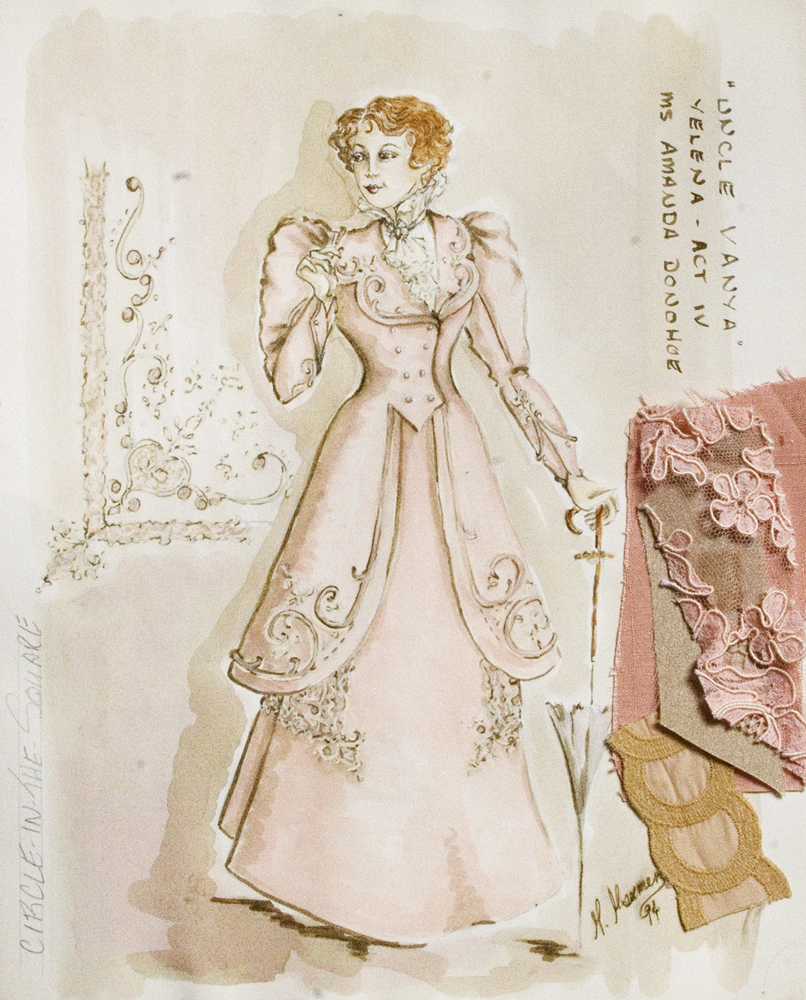 "UNCLE VANYA"
YELENA - ACT IV
MS AMANDA DONOHOE
CIRCLE-IN-THE-SQUARE
94